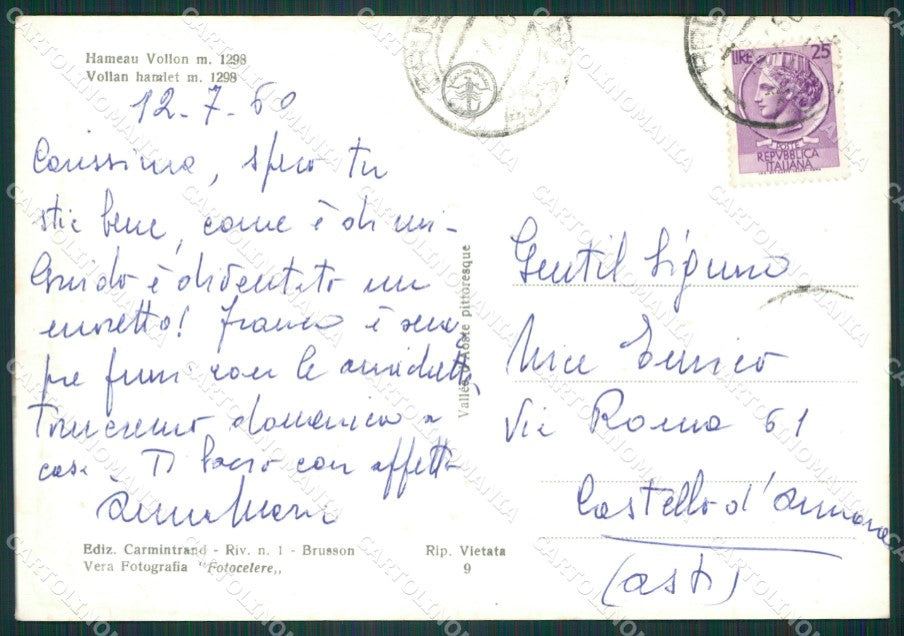 Hameau Vollon m. 1298
Vollan hamlet m. 1298
12-7-60
Carissima, spero tu
stia bene, come è di noi-
Guido è diventato un
moretto! Franco è sem
pre fuori con le amichette,
Torneremo domenica a
casa Ti bacio con affetto
AnnaMaria
Ediz. Carmintrand - Riv. n. 1 - Brusson
Vera Fotografia "Fotocelere,,
Rip. Vietata
9
Vallée d'Aoste pittoresque
LIRE 25
POSTE
REPVBBLICA
ITALIANA
Gentil Signora
Nice Enrico
Via Roma 61
Castello d'Annone
(Asti)
CARTOLINOMANIA